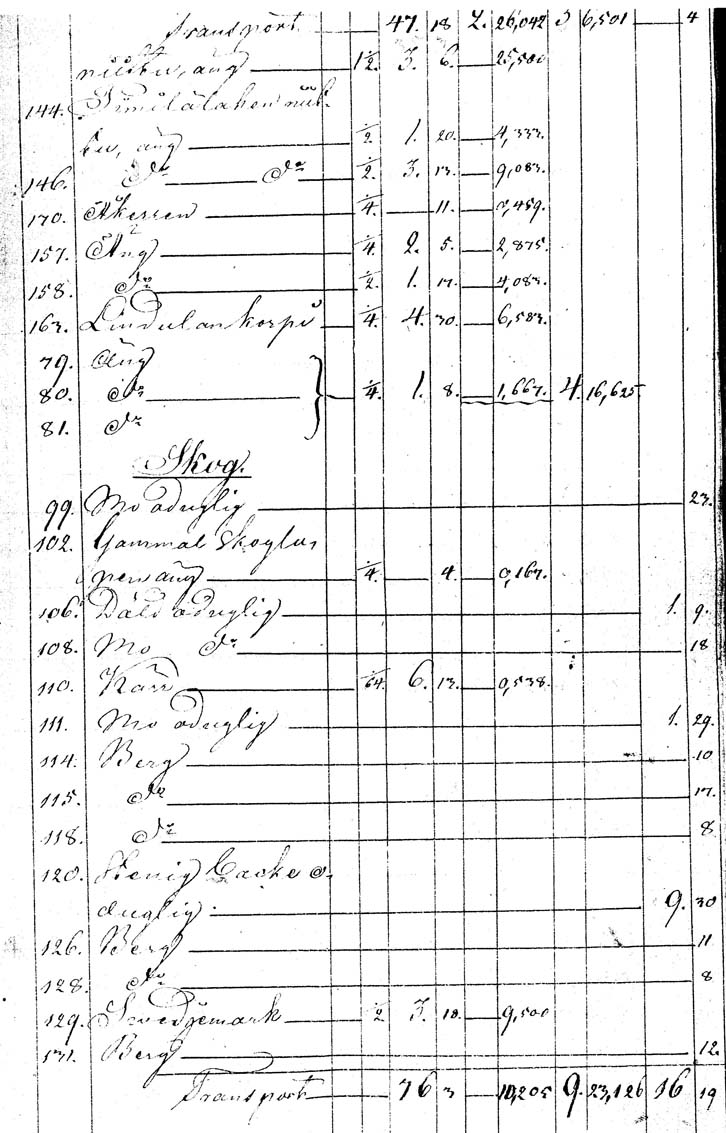 Transport 47. 18 2. 26,042 3 6,501 4
niittu, äng 1/2. 3. 6. 25,500
144.
tu, äng 1/2 1. 20. 4,333.
146. Do Do 1/2. 3. 13. 9,083.
170. Åkerren 1/4. 11. 0,459.
157. Äng 1/4. 2. 5. 2,875.
158. Do 1/2. 1. 17. 4,083.
163. Lindulankorpi 1/4. 4. 30. 6,583.
79. Äng
80. Do 1/4. 1. 8. 1,667. 4. 16,625.
81. Do
Skog.
99. Mo oduglig 23.
102. Gammal Skoglup
pen äng 1/4. 4. 0,167.
106. Däld oduglig 1. 9.
108. Mo Do 18
110. Kärr 1/64. 6. 13. 0,538.
111. Mo oduglig 1. 29.
114. Berg 10
115. Do 17.
118. Do 8
120. Stenig Backe o-
duglig 9. 30
126. Berg 11
128. Do 8
129. Svedjemark 1/2 3. 18. 9,500
131. Berg 12.
Transport 76 3 10,205 9. 23,126 16 19